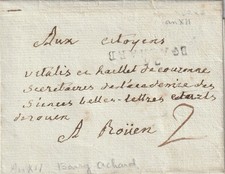 an XII
Aux citoyens
vitalis et haillet de couronne
Secretaires de l'academie des
Siences belles-lettres et arts
de rouen
A Roüen
2